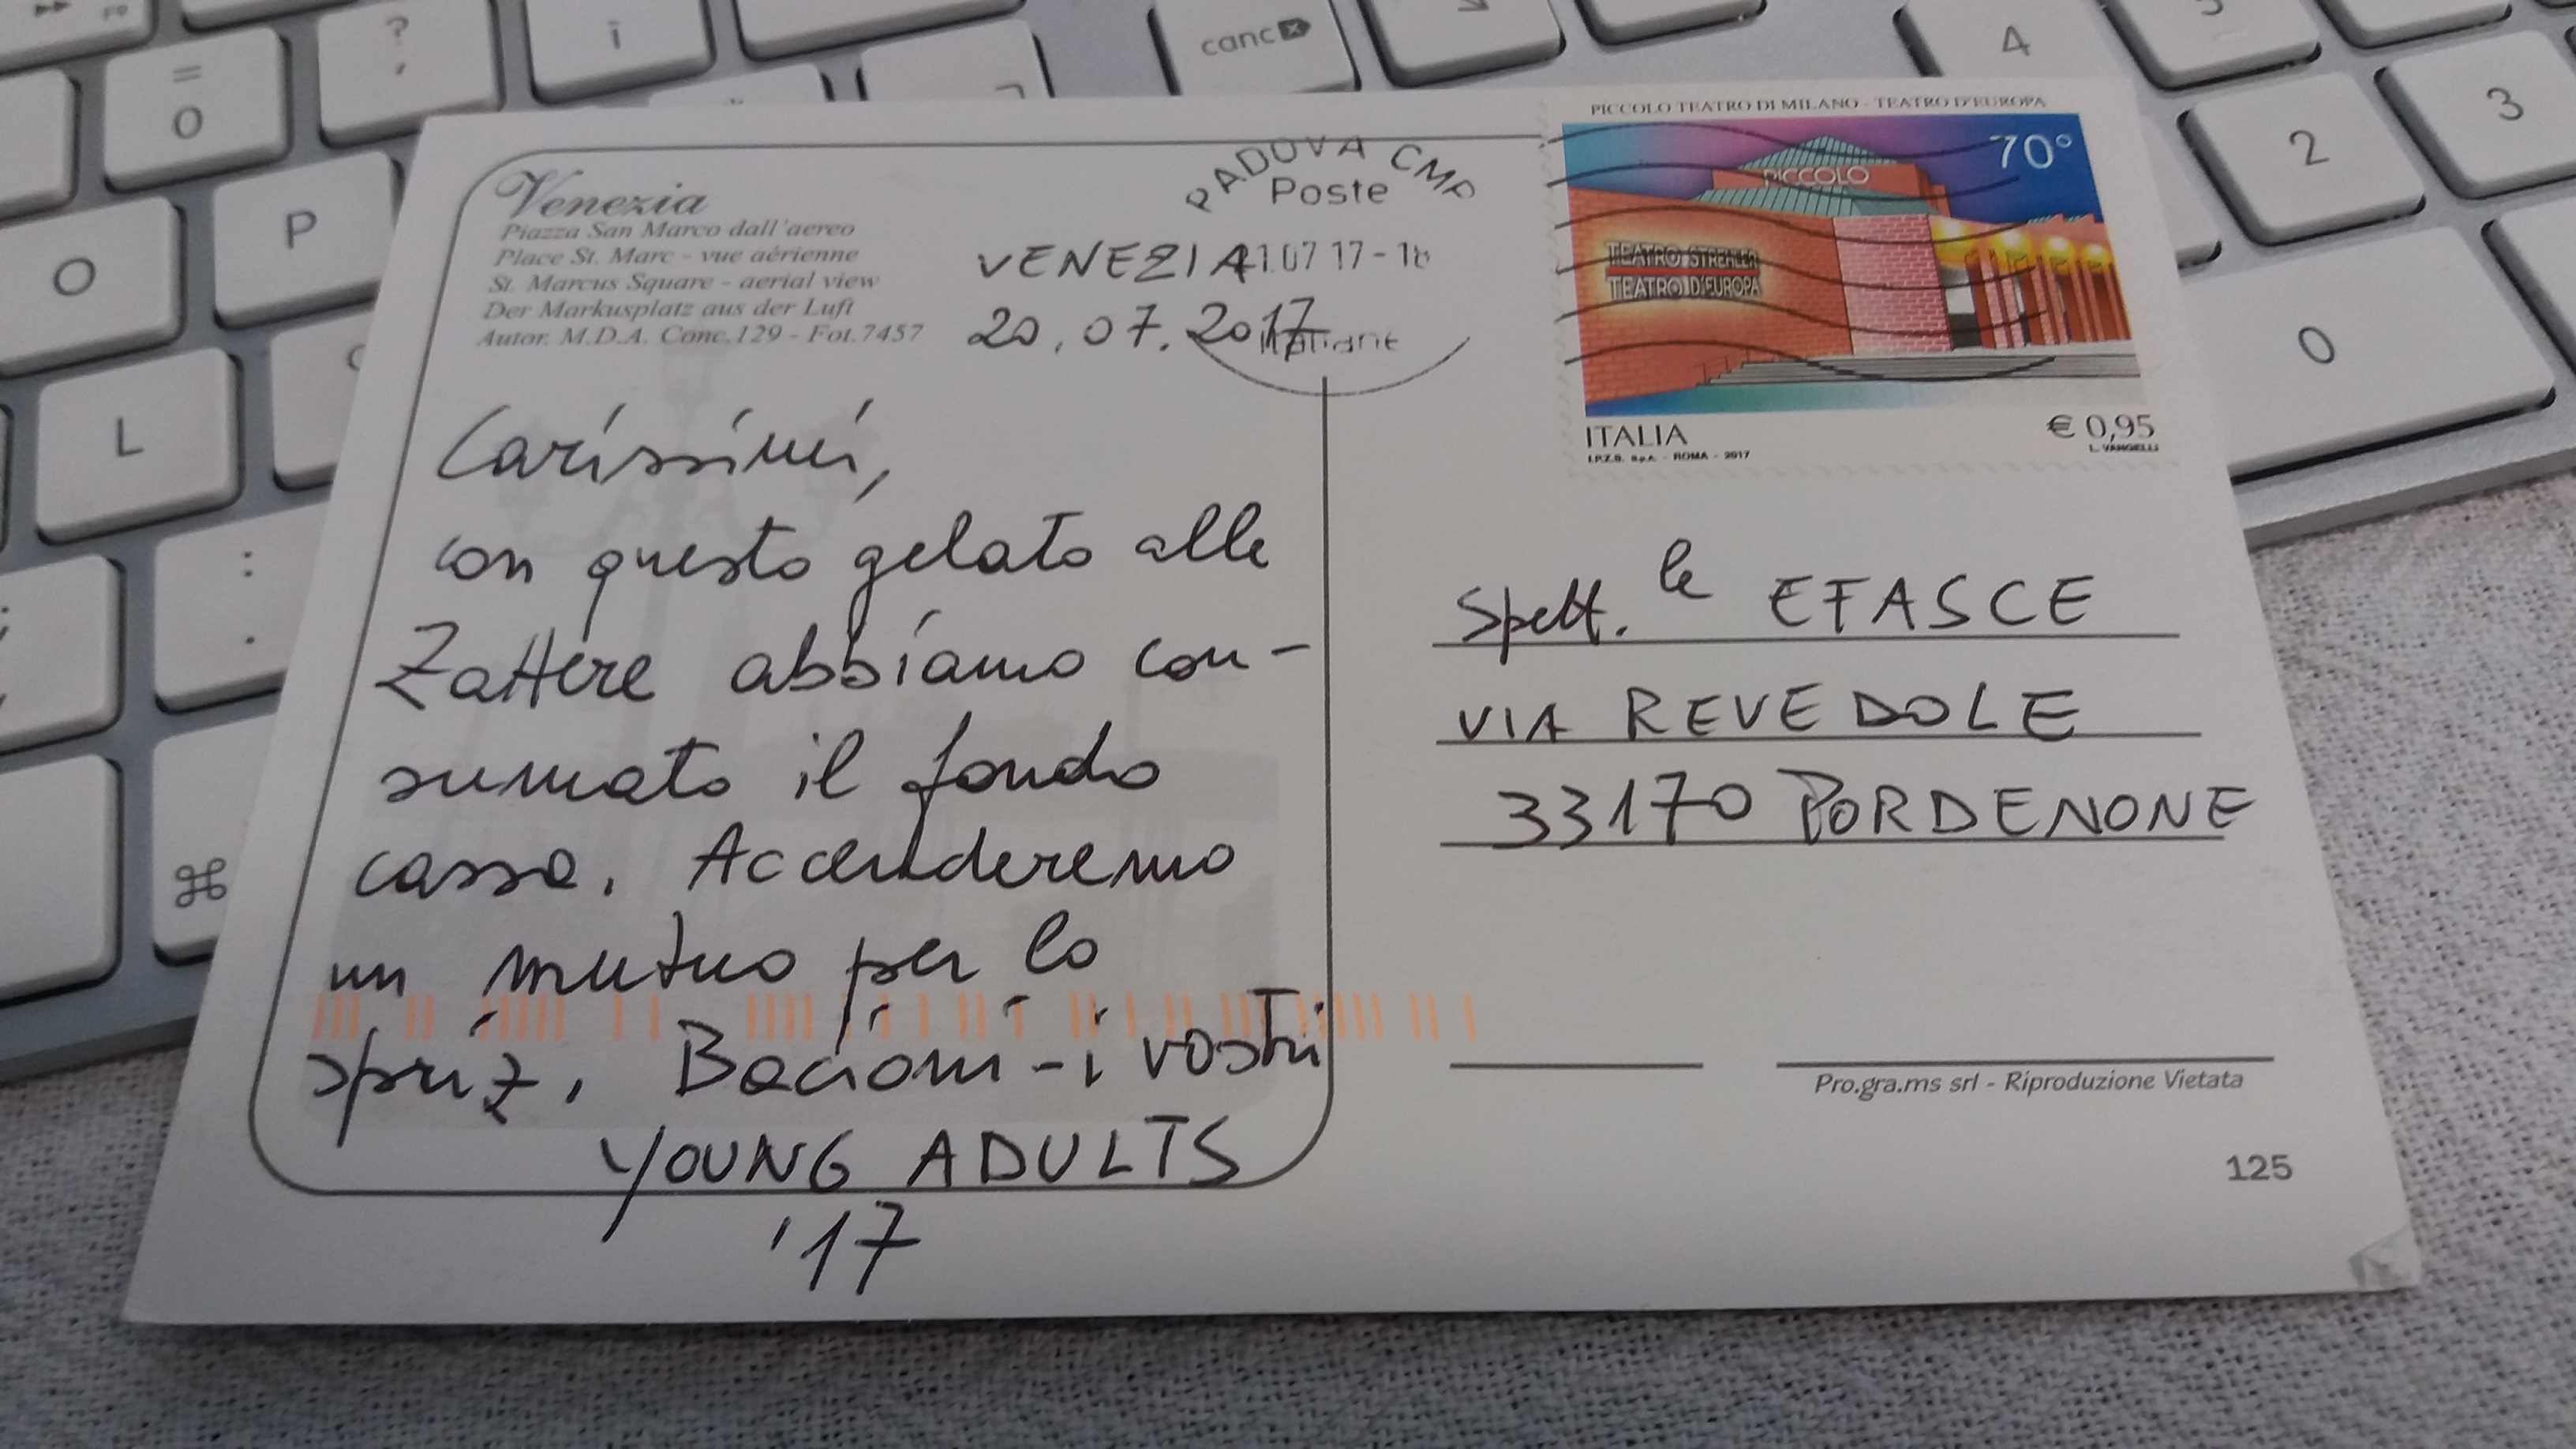 F9
=
0
?
'
ì
canc
4
3
2
0
P
O
L
:
.
;
,
⌘
PICCOLO TEATRO DI MILANO - TEATRO D'EUROPA
70°
PICCOLO
TEATRO STREHLER
TEATRO D'EUROPA
ITALIA
€ 0,95
I.P.Z.S. S.p.A. - ROMA - 2017
L. VANGELLI
PADOVA CMP
Poste
1.07 17-18
Italiane
Venezia
Piazza San Marco dall'aereo
Place St. Marc - vue aérienne
St. Marcus Square - aerial view
Der Markusplatz aus der Luft
Autor. M.D.A. Conc.129 - Fot.7457
VENEZIA
20.07.2017
Carissimi,
con questo gelato alle
Zattere abbiamo con-
sumato il fondo
cassa. Accenderemo
un mutuo per lo
spriz. Bacioni - i vostri
YOUNG ADULTS
'17
Spett.le EFASCE
VIA REVEDOLE
33170 PORDENONE
Pro.gra.ms srl - Riproduzione Vietata
125